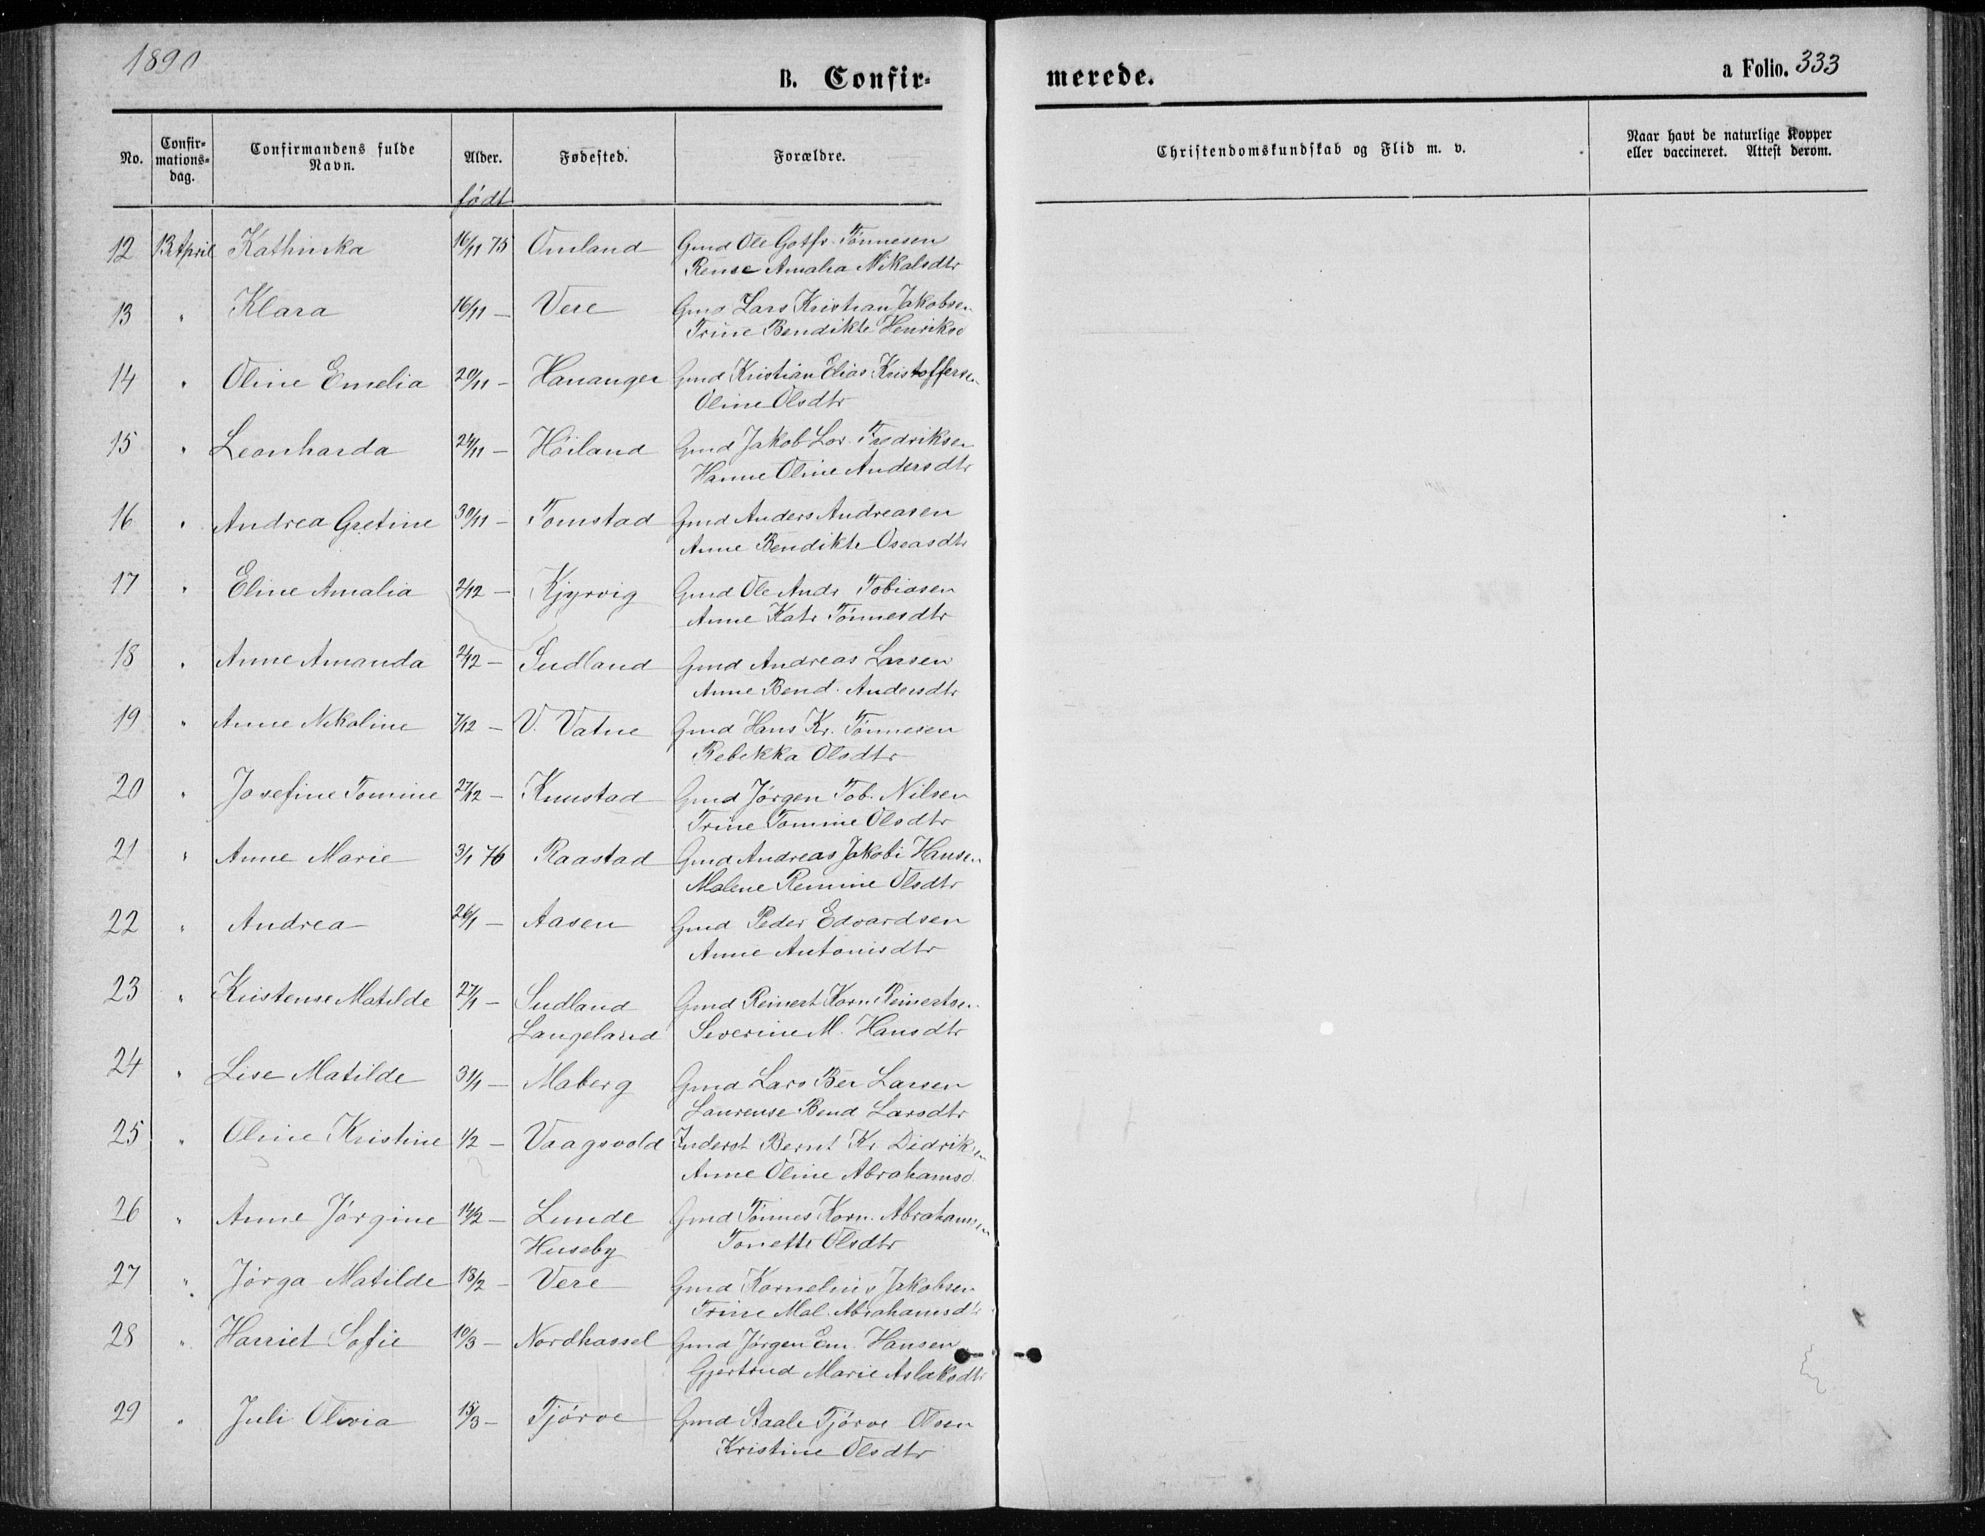 1890
B. Confir- merede.
a Folio. 333
No. Confir-mations-dag. Confirmandens fulde Navn. Alder. Fødested. Forældre. Christendomskundskab og Flid m. v. Naar havt de naturlige Kopper eller vaccineret. Attest derom.
født
12 13 April Kathinka 16/11 75 Omland Gmd Ole Gotfr. Tønnesen
Rense Amalia Nikalsdtr
13 " Klara 16/11 — Vere Gmd Lars Kristian Jakobsen
Trine Bendikte Henriksd
14 " Oline Emelia 20/11 — Hananger Gmd Kristian Elias Kristoffersen
Oline Olsdtr
15 " Leonharda 24/11 — Höiland Gmd Jakob Lor. Fredriksen
Hanne Oline Andersdtr
16 " Andrea Gretine 30/11 — Tomstad Gmd Anders Andreasen
Anne Bendikte Oseasdtr
17 " Eline Amalia 2/12 — Kjørvig Gmd Ole Andr Tobiasen
Anne Katr Tönnesdtr
18 " Anne Amanda 2/12 — Sudland Gmd Andreas Larsen
Anne Bend. Andersdtr
19 " Anne Nikoline 7/12 — V. Vatne Gmd Hans Kr. Tønnesen
Rebekka Olsdtr
20 " Josefine Tomine 27/12 — Knustad Gmd Jørgen Tob. Nilsen
Trine Tomine Olsdtr
21 " Anne Marie 3/1 76 Raastad Gmd Andreas Jakobi Hansen
Malene Remine Olsdtr
22 " Andrea 26/1 — Aasen Gmd Peder Edvardsen
Anne Antonisdtr
23 " Kristense Matilde 27/1 — Sudland Gmd Reinert Korn. Reinertsen
Langeland Severine M. Hansdtr
24 " Lise Matilde 31/1 — Maberg Gmd Lars Ber Larsen
Laurense Bend Larsdtr
25 " Oline Kristine 1/2 — Vaagsvold Inderst Bernt Kr. Didriksen
Anne Oline Abrahamsd.
26 " Anne Jørgine 14/2 — Lunde Gmd Tønnes Korn. Abrahamsen
Huseby Tonette Olsdtr
27 " Jørga Matilde 18/2 — Vere Gmd Kornelius Jakobsen
Trine Mal. Abrahamsdtr
28 " Harriet Sofie 10/3 — Nordhassel Gmd Jørgen Em. Hansen
Gjertrud Marie Aslaksdtr
29 " Juli Olivia 15/3 — Tjørve Gmd Staale Tjørve Olsen
Kristine Olsdtr